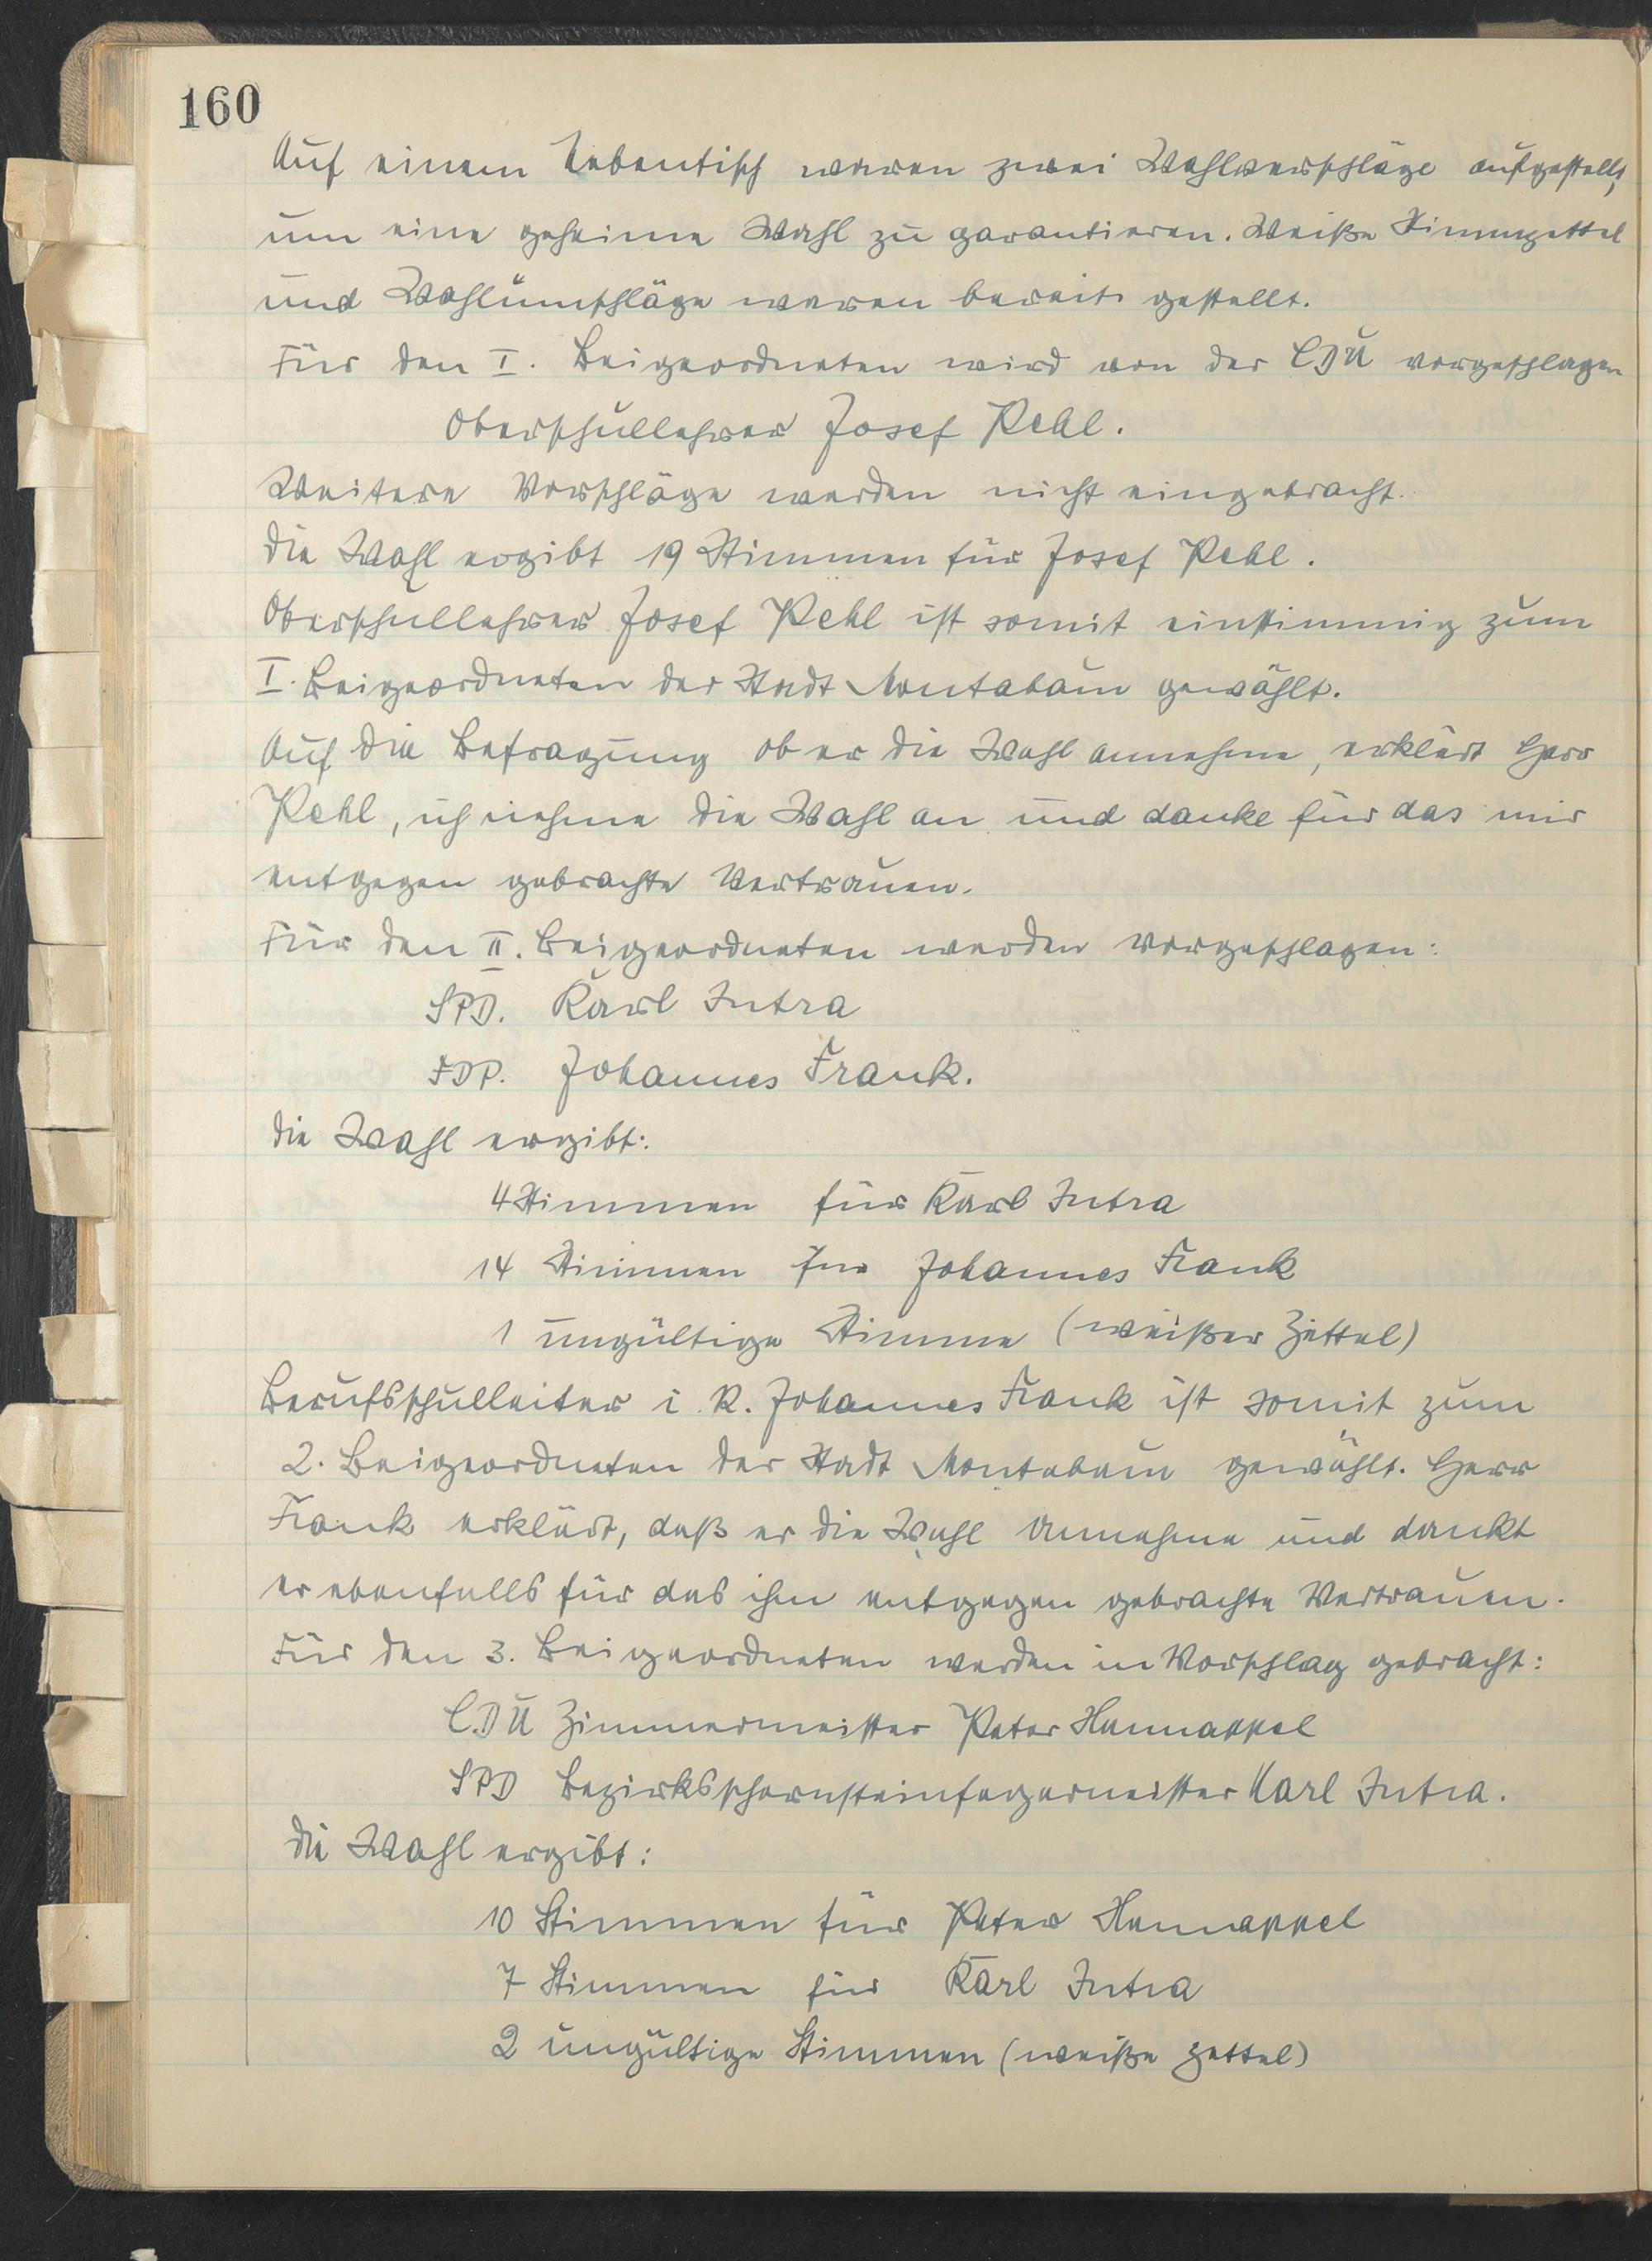 160
Auf einem Nebentisch waren zwei Wahlverschläge aufgestellt,
um eine geheime Wahl zu garantieren. Weiße Stimmzettel
und Wahlumschläge waren bereits gestellt.
Für den I. Beigeordneten wird von der CDU vorgeschlagen
Oberschullehrer Josef Pehl.
Weitere Vorschläge werden nicht eingebracht.
Die Wahl ergibt 19 Stimmen für Josef Pehl.
Oberschullehrer Josef Pehl ist somit einstimmig zum
I. Beigeordneten der Stadt Montabaur gewählt.
Auf die Befragung ob er die Wahl annehme, erklärt Herr
Pehl, ich nehme die Wahl an und danke für das mir
entgegen gebrachte Vertrauen.
Für den II. Beigeordneten werden vorgeschlagen:
SPD. Karl Intra
FDP. Johannes Frank.
Die Wahl ergibt:
4 Stimmen für Karl Intra
14 Stimmen für Johannes Frank
1 ungültige Stimme (weißer Zettel)
Berufsschulleiter i. R. Johannes Frank ist somit zum
2. Beigeordneten der Stadt Montabaur gewählt. Herr
Frank erklärt, daß er die Wahl annehme und dankt
er ebenfalls für das ihm entgegen gebrachte Vertrauen.
Für den 3. Beigeordneten werden in Vorschlag gebracht:
CDU Zimmermeister Peter Hannappel
SPD Bezirksschornsteinfegermeister Karl Intra.
Die Wahl ergibt:
10 Stimmen für Peter Hannappel
7 Stimmen für Karl Intra
2 ungültige Stimmen (weiße Zettel)